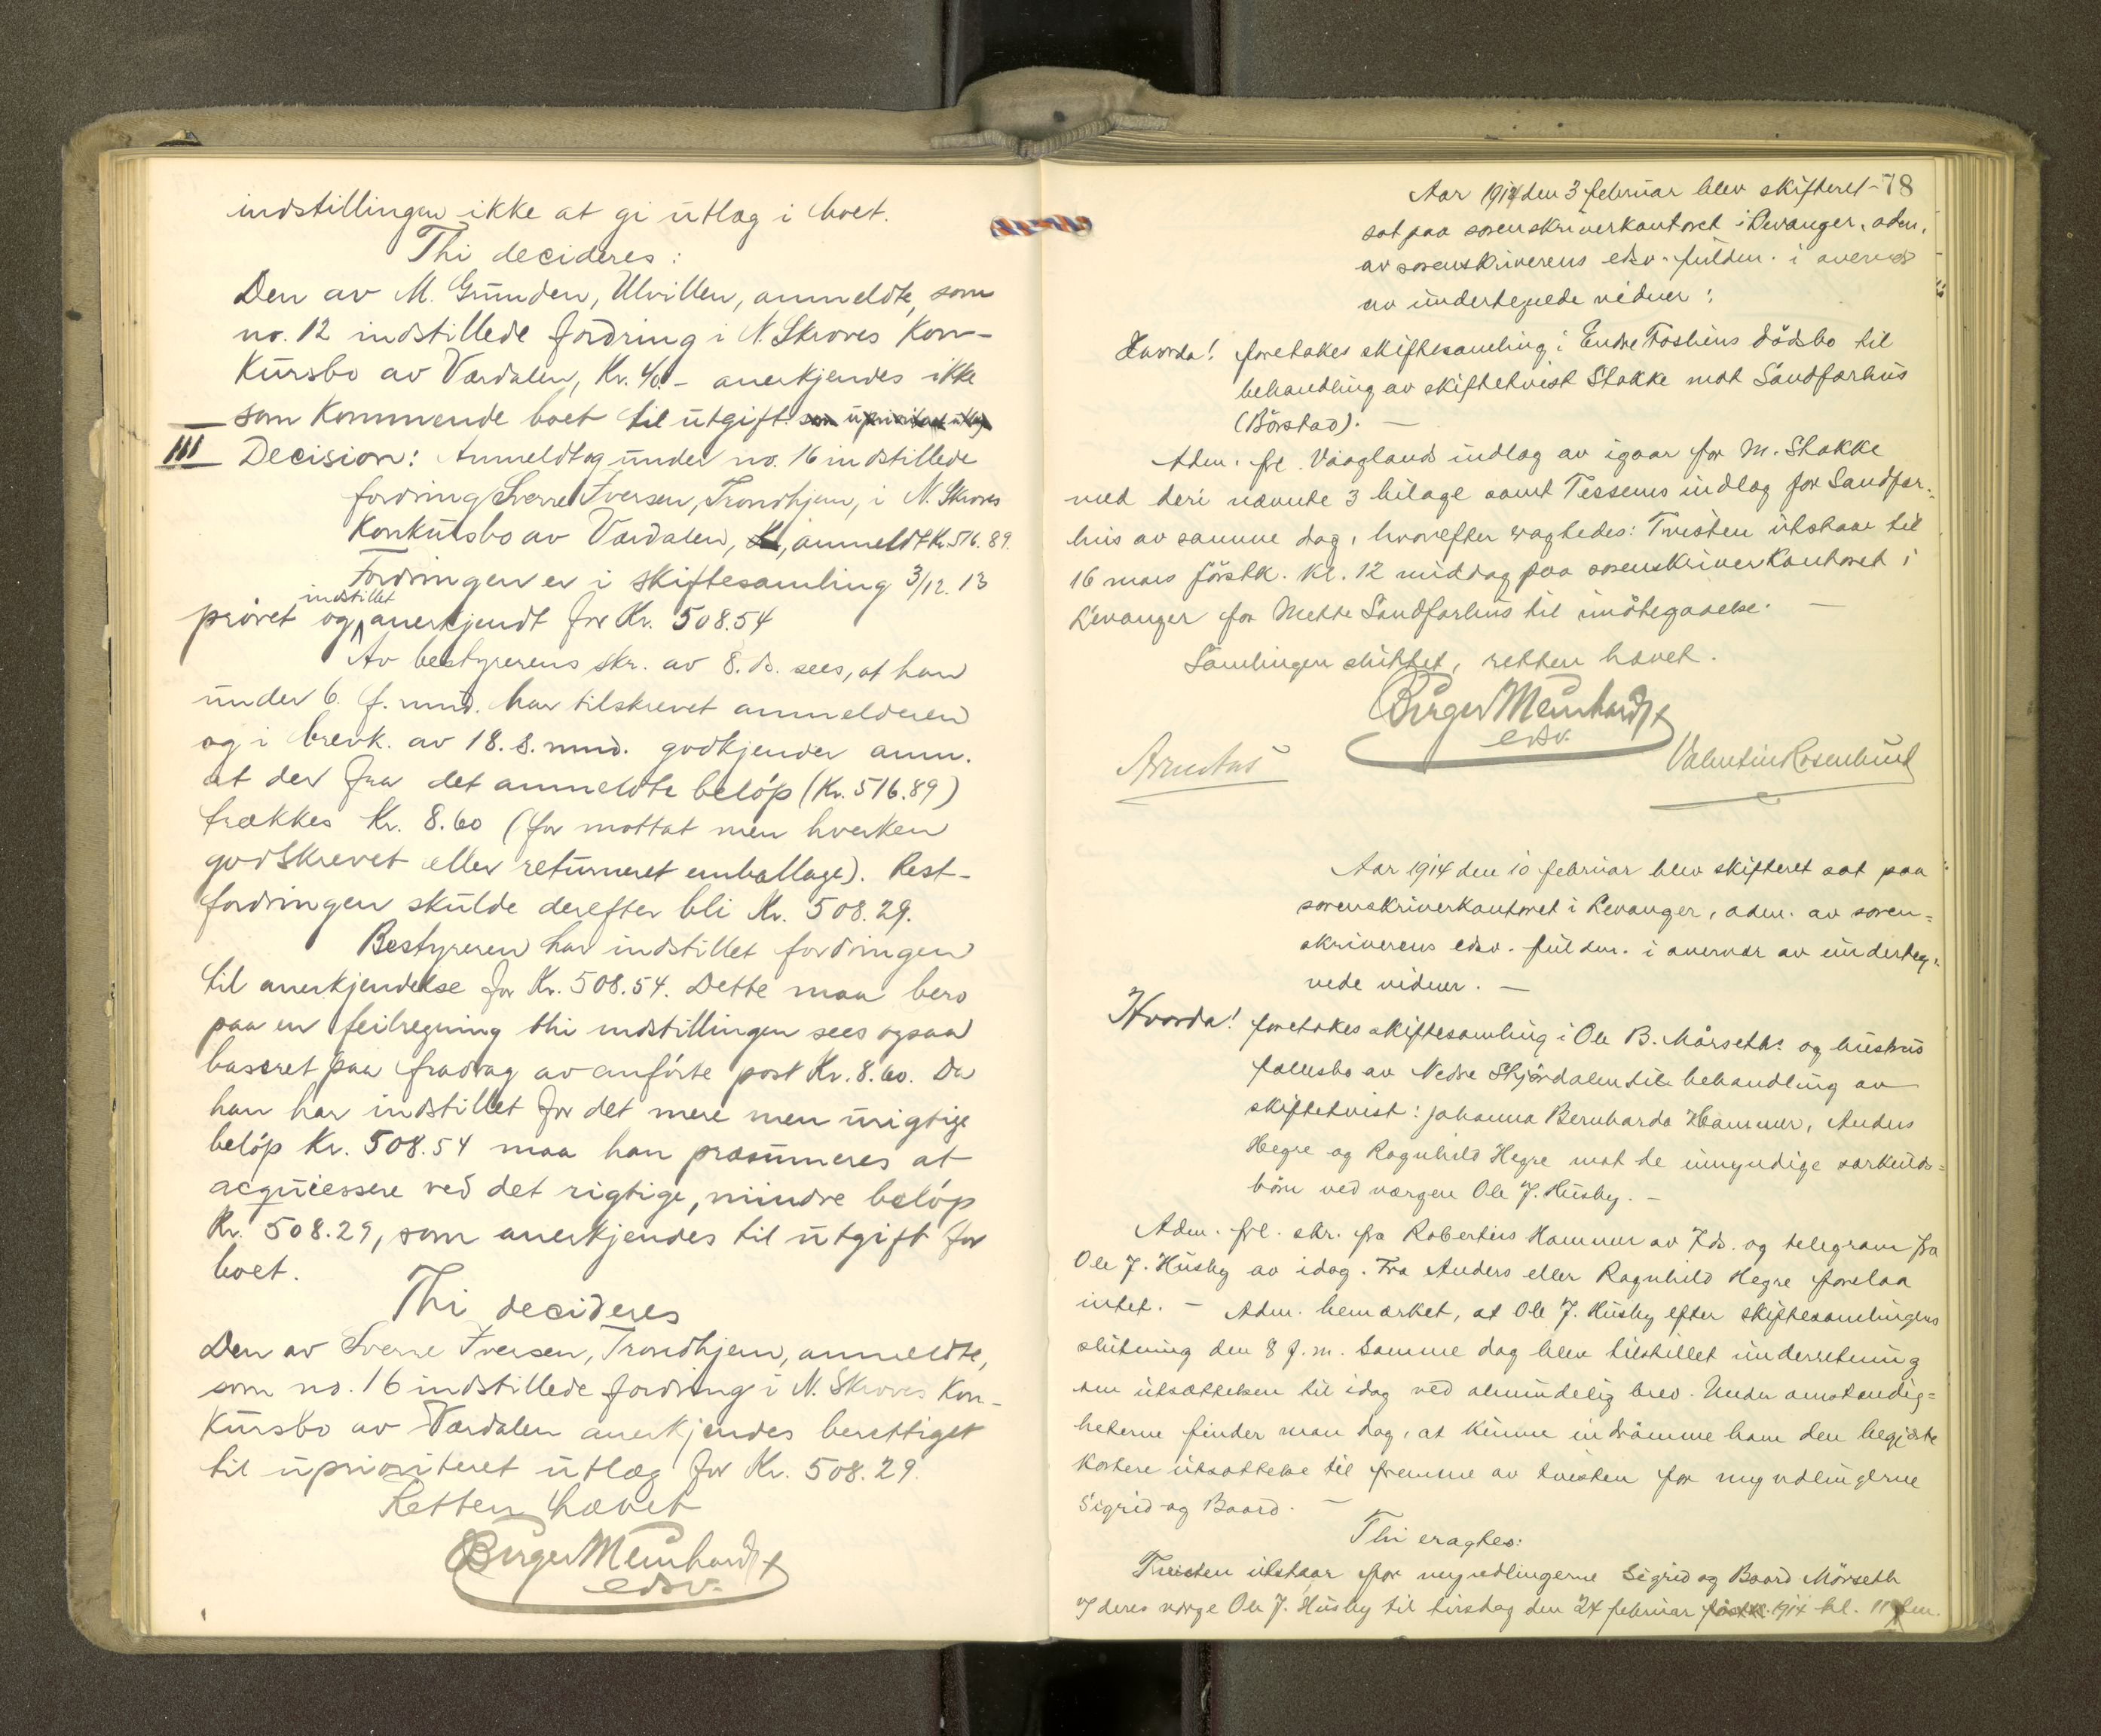 indstillingen ikke at gi utlæg i boet.
Thi decideres:
Den av M. Grunden, Ulvillen, anmeldte, som
no. 12 indstillede fordring i N. Skroves Kon-
kursbo av Værdalen, Kr. 40.- anerkjendes ikke
som kommende boet til utgift. som uprioritert utlæg
III Decision: Anmeldt og under no. 16 indstillede
fordring Sverre Iversen, Trondhjem, i N. Skroves
Konkursbo av Værdalen, anmeldt Kr. 516.89.
Fordringen er i skiftesamling 3/12. 13
indstillet
prøvet og anerkjendt for Kr. 508.54
Av bestyrerens skr. av 8. ds. sees, at han
under 6. f. mnd. har tilskrevet anmelderen
og i brevk. av 18. s. mnd. godkjender anm.
at der fra det anmeldte beløp (Kr. 516.89)
trækkes Kr. 8.60 (for mottat men hverken
godskrevet eller returneret emballage). Rest-
fordringen skulde derefter bli Kr. 508.29.
Bestyreren har indstillet fordringen
til anerkjendelse for Kr. 508.54. Dette maa bero
paa en feilregning thi indstillingen sees ogsaa
baseret paa fradrag av anførte post Kr. 8.60. Da
han har indstillet for det mere men urigtige
beløp Kr. 508.54 maa han præsumeres at
acquiessere ved det rigtige, mindre beløp
Kr. 508.29, som anerkjendes til utgift for
boet.
Thi decideres
Den av Sverre Iversen, Trondhjem, anmeldte,
som no. 16 indstillede fordring i N. Skroves Kon-
kursbo av Værdalen anerkjendes berettiget
til uprioriteret utlæg for Kr. 508.29.
Retten hævet
Birger Meinhardt
edsv.
78
Aar 1914 den 3 februar blev skifteret
sat paa sorenskriverkontoret i Levanger, adm.
av sorenskriverens edsv. fuldm. i overvær
av undertegnede vidner:
Hvorda! foretokes skiftesamling i Endre Foshens dödsbo til
behandling av skiftetvist Stokke mot Sandfærhus
(Börstad). —
Adm. frl. Vaaglands indlæg av igaar for M. Stokke
med deri nævnte 3 bilage samt Tessems indlæg for Sandfær-
hus av samme dag, hvorefter eragtedes: Tvisten utstaar til
16 mars förstk. kl. 12 middag paa sorenskriverkontoret i
Levanger for Mette Sandfærhus til imötegaaelse. —
Samlingen sluttet, retten hævet.
Birger Meinhardt
edsv.
Valentin Rosenlund
Aar 1914 den 10 februar blev skifteret sat paa
sorenskriverkontoret i Levanger, adm. av soren=
skriverens edsv. fuldm. i overvær av underteg=
nede vidner. —
Hvorda! foretokes skiftesamling i Ole B. Mörseths og hustrus
fællesbo av Nedre Stjördalen til behandling av
skiftetvist: Johanna Bernharda Hammer, Anders
Hegre og Ragnhild Hegre mot de umyndige særkulds=
börn ved værgen Ole J. Husby. —
Adm. frl. skr. fra Robertius Hammer av 7 ds. og telegram fra
Ole J. Husby av idag. Fra Anders eller Ragnhild Hegre forelaa
intet. — Adm. bemærket, at Ole J. Husby efter skiftesamlingens
slutning den 8 f. m. samme dag blev tilstillet underretning
om utsættelsen til idag ved almindelig brev. Under omstændig=
heterne finder man dog, at kunne indrömme ham den begjærte
kortere utsættelse til fremme av tvisten for myndlingerne
Sigrid og Baard. —
Thi eragtes:
Tvisten utstaar for myndlingerne Sigrid og Baard Mörseth
v/ deres værge Ole J. Husby til tirsdag den 24 februar förstk. 1914 kl. 11 fm.